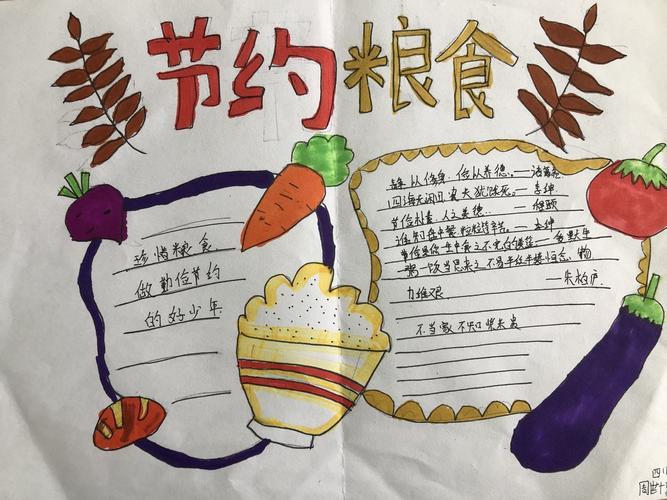 节约粮食
珍惜粮食
做勤俭节约
的好少年
静以修身,俭以养德。——诸葛亮
四海无闲田,农夫犹饿死。——李绅
节俭朴素,人之美德.——
谁知盘中餐,粒粒皆辛苦。——李绅
节俭是你一生中食之不完的美筵——爱默生
粥一饭当思来之不易半丝半缕恒念物
力维艰 ——朱柏庐
不当家不知柴米贵